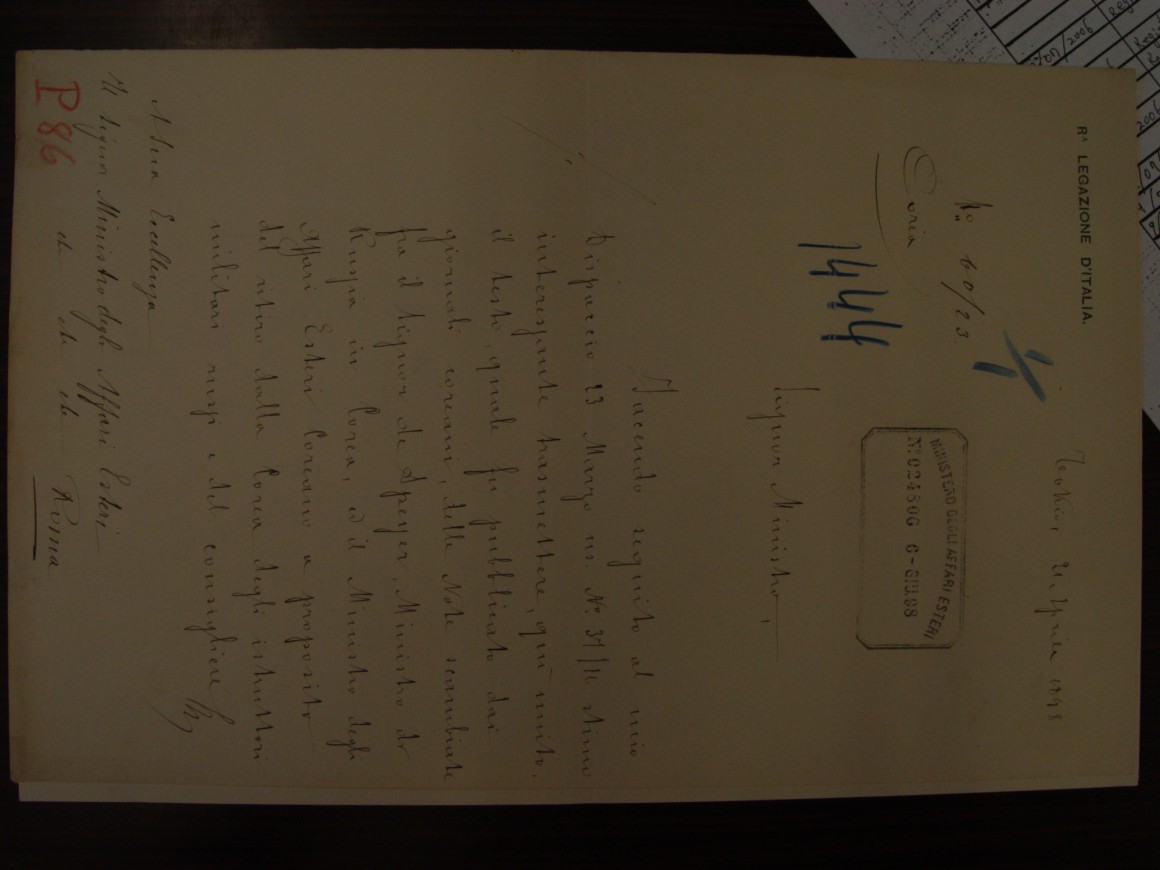 Rᴬ LEGAZIONE D'ITALIA.
Tokio, Aprile 1898
Nº 60/23
Corea
1444
MINISTERO DEGLI AFFARI ESTERI
Nº 024806 6-GIU.98
Signor Ministro,
Facendo seguito al mio
Dispaccio 23 Marzo us. Nº stimo
interessante trasmettere, qui unito,
il testo, quale fu pubblicato dai
giornali coreani, delle Note scambiate
fra il Signor de Speyer, Ministro di
Russia in Corea, ed il Ministro degli
Affari Esteri Coreano a proposito
del ritiro dalla Corea degli istruttori
militari russi e del consigliere
A Sua Eccellenza
Il Signor Ministro degli Affari Esteri
etc etc etc Roma
P 86
2006
2006